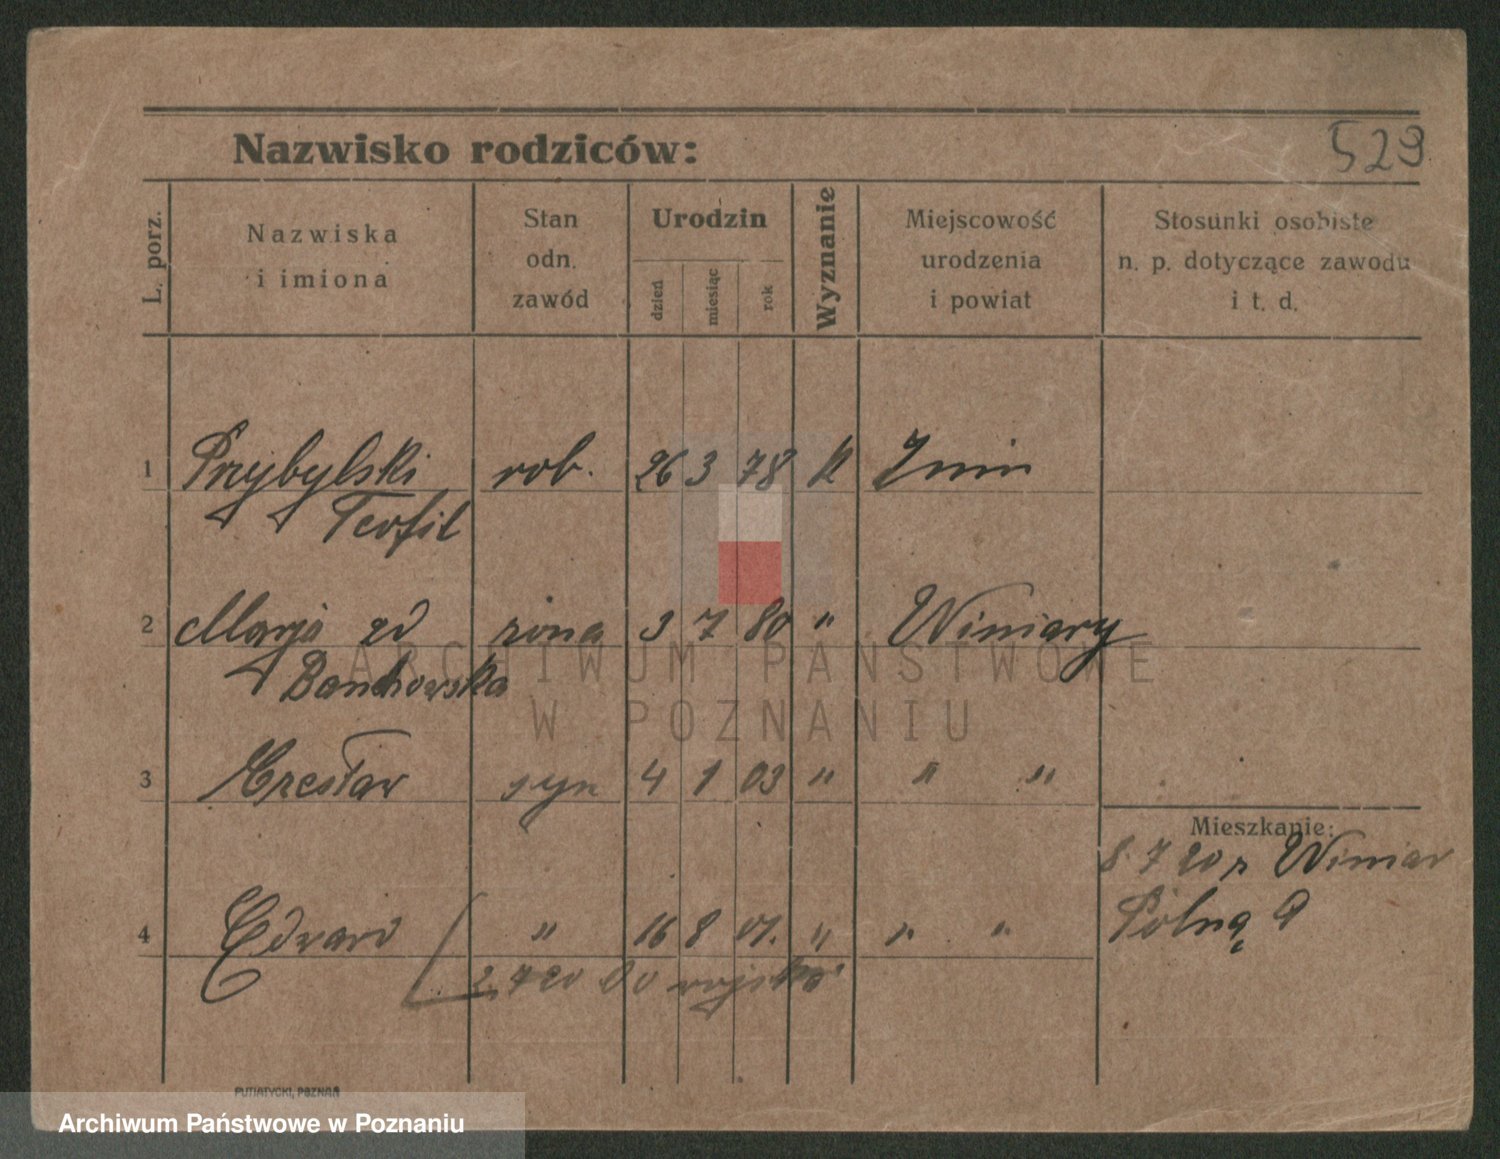 529
Nazwisko rodziców:
L. porz.
Nazwiska
i imiona
Stan
odn.
zawód
Urodzin
dzień
miesiąc
rok
Wyznanie
Miejscowość
urodzenia
i powiat
Stosunki osobiste
n. p. dotyczące zawodu
i t. d.
1 Przybylski rob. 26 3 78 k Żnin
Teofil
2 Marja zd żona 3 7 80 " Winiary
3 Czesław syn 4 1 03 " " "
Mieszkanie:
8 7 20 z Winiar
Polną 9
4 Edward " 16 8 01. " " "
2. 7 20 do wojska
PUTIATYCKI, POZNAŃ
ARCHIWUM PAŃSTWOWE
W POZNANIU
Archiwum Państwowe w Poznaniu